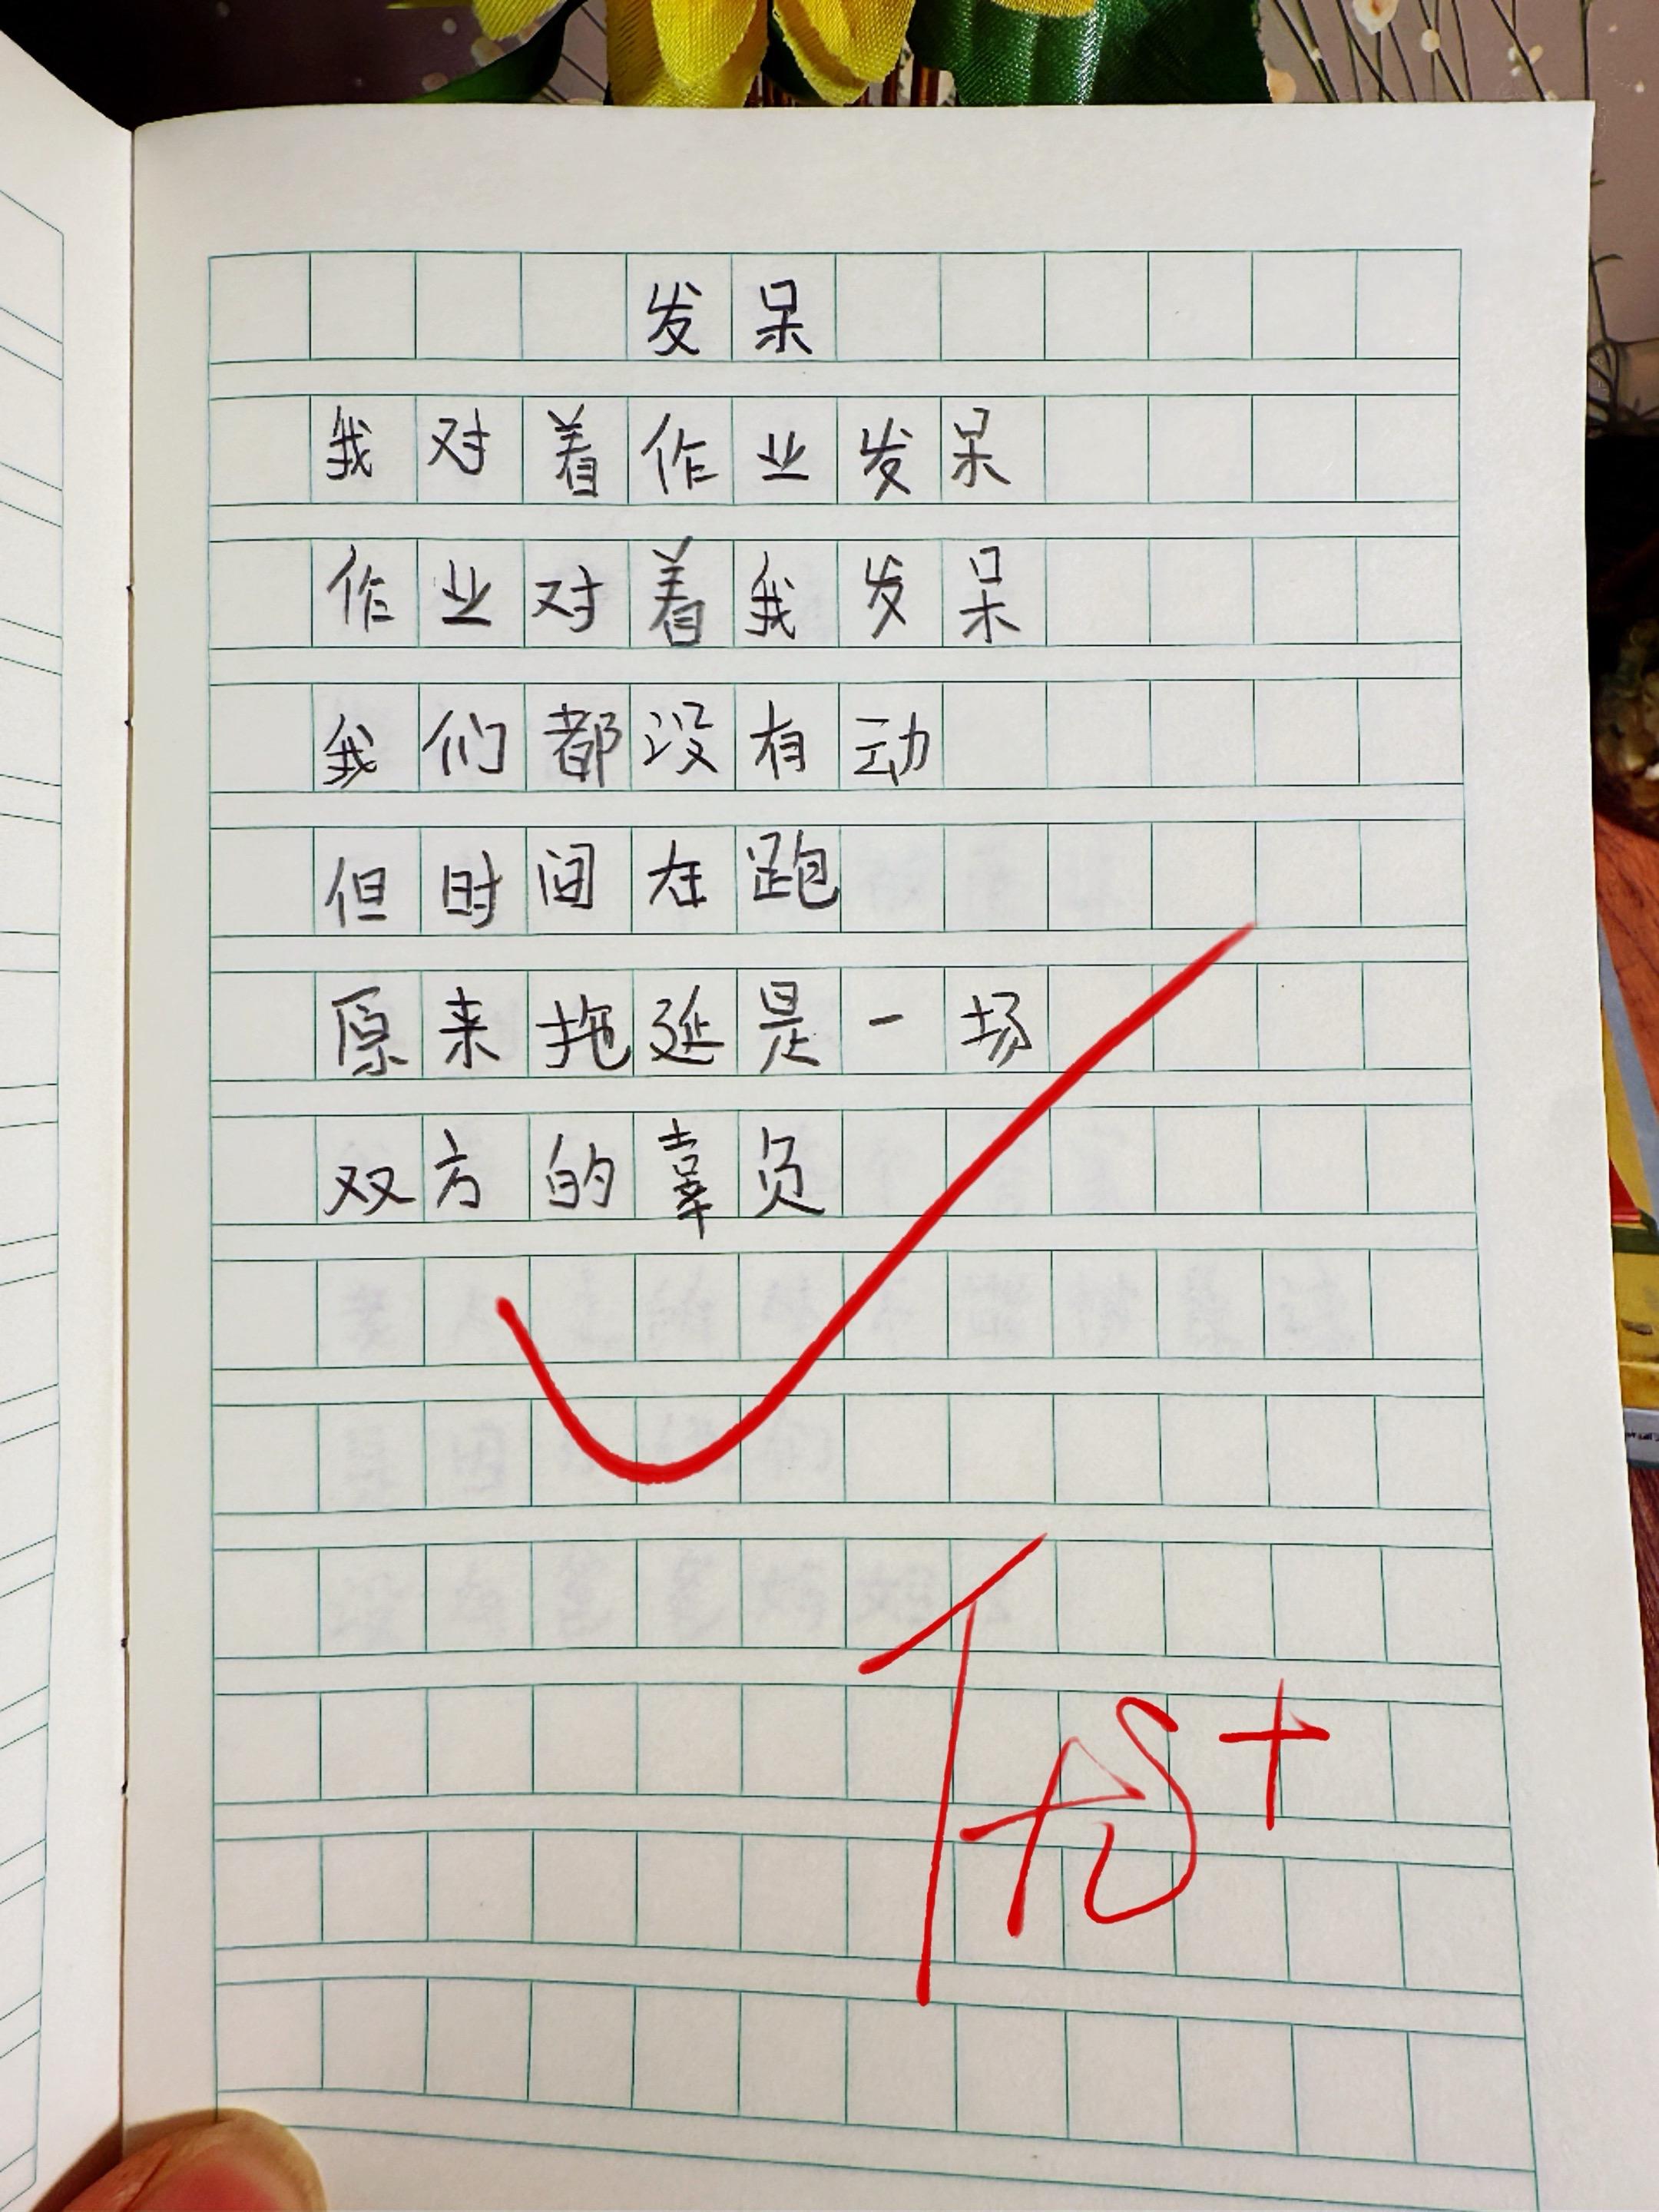 发呆
我对着作业发呆
作业对着我发呆
我们都没有动
但时间在跑
原来拖延是一场
双方的辜负